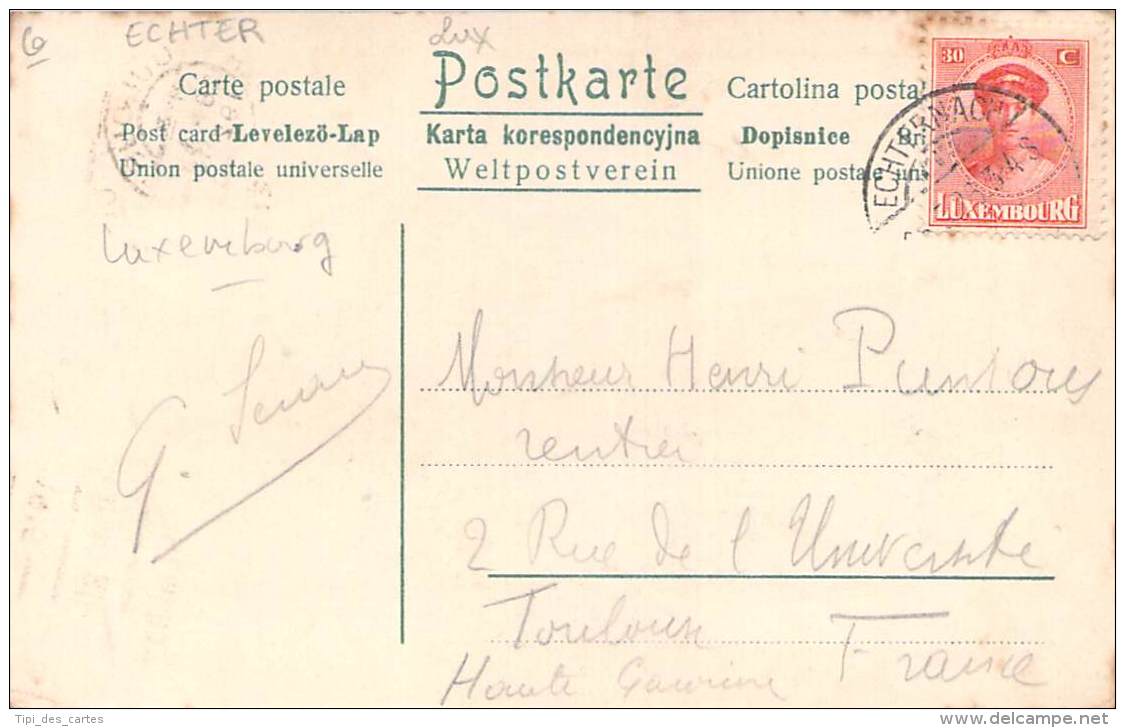 6
ECHTER
Lux
Carte postale
Postkarte
Cartolina postal
Post card-Levelező-Lap
Karta korespondencyjna
Dopisnice
Union postale universelle
Weltpostverein
Unione postale uni
30 C
ECHTERNACH
LUXEMBOURG
Luxembourg
G.
Monsieur Henri Puntous
rentier
2 Rue de l Université
Toulouse
Haute Garonne
France
Tipi_des_cartes
www.delcampe.net